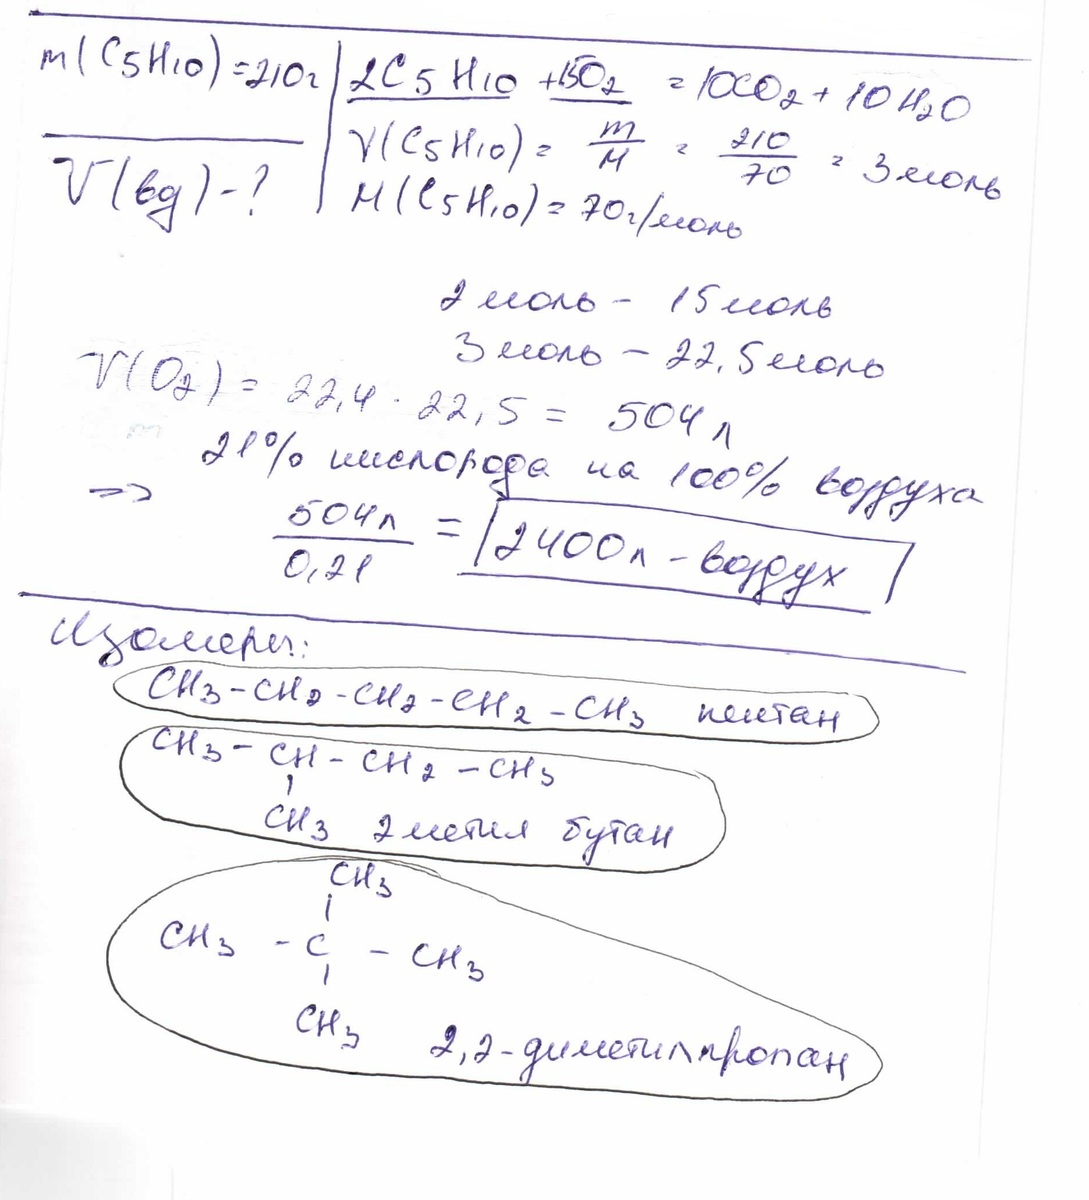 m(C5H10)=210г
V(вд)-?
2C5H10 +15O2 = 10CO2 + 10H2O
ν(C5H10) = m/M = 210/70 = 3 моль
M(C5H10) = 70г/моль
2 моль - 15 моль
3 моль - 22,5 моль
V(O2) = 22,4 · 22,5 = 504 л
21% кислорода на 100% воздуха
=> 504л/0,21 = 2400л - воздух
Изомеры:
CH3-CH2-CH2-CH2-CH3 пентан
CH3-CH-CH2-CH3
CH3 2 метил бутан
CH3
CH3 - C - CH3
CH3
2,2-диметилпропан